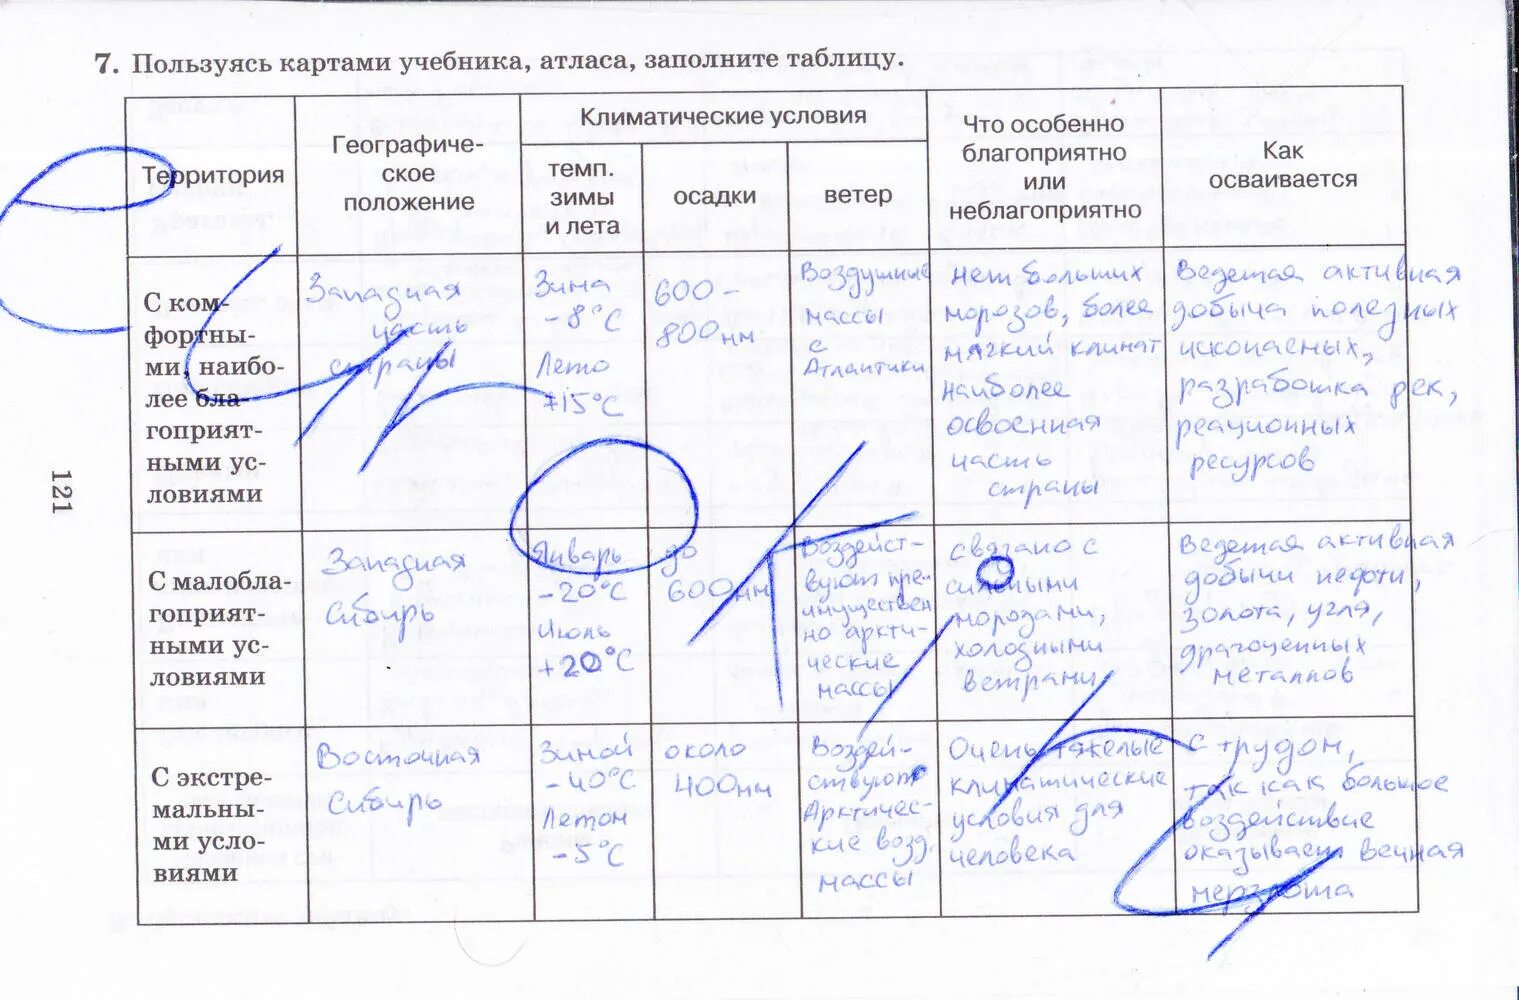 7. Пользуясь картами учебника, атласа, заполните таблицу.
Территория
Географиче-
ское
положение
Климатические условия
темп.
зимы
и лета
осадки
ветер
Что особенно
благоприятно
или
неблагоприятно
Как
осваивается
С ком-
фортны-
ми, наибо-
лее бла-
гоприят-
ными ус-
ловиями
Западная
часть
страны
Зима
-8°С
Лето
+15°С
600-
800мм
Воздушные
массы
с
Атлантики
нет больших
морозов, более
мягкий климат
наиболее
освоенная
часть
страны
Ведется активная
добыча полезных
ископаемых,
разработка рек,
реационных
ресурсов
С малобла-
гоприят-
ными ус-
ловиями
Западная
Сибирь
Январь
-20°С
Июль
+20°С
до
600мм
Воздейст-
вуют пре-
имуществен
но аркти-
ческие
массы
связано с
сильными
морозами,
холодными
ветрами
Ведется активная
добычи нефти,
золота, угля,
драгоценных
металлов
С экстре-
мальны-
ми усло-
виями
Восточная
Сибирь
Зимой
-40°С
Летом
-5°С
около
400мм
Воздей-
ствуют
Арктичес-
кие возд.
массы
Очень тяжелые
климатические
условия для
человека
С трудом,
так как большое
воздействие
оказывает вечная
мерзлота
121